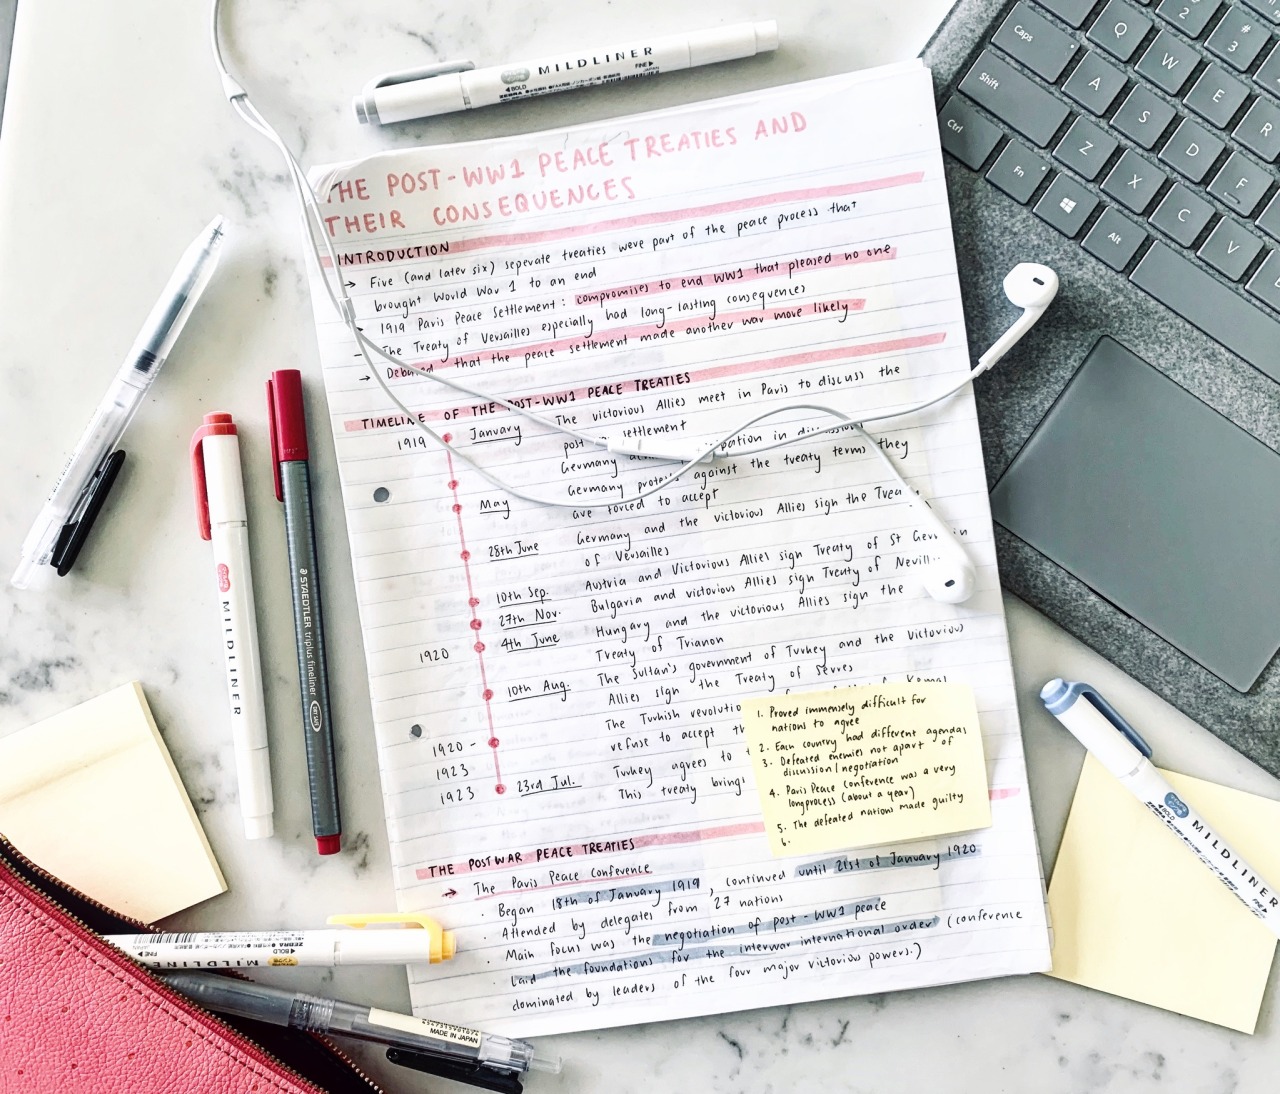 MILDLINER
FINE
BOLD
ZEBRA
JAPAN
THE POST-WW1 PEACE TREATIES AND
THEIR CONSEQUENCES
INTRODUCTION
→ Five (and later six) seperate treaties were part of the peace process that
brought World War 1 to an end
→ 1919 Paris Peace Settlement: compromises to end WW1 that pleased no one
→ The Treaty of Versailles especially had long-lasting consequences
→ Debated that the peace settlement made another war more likely
TIMELINE OF THE POST-WW1 PEACE TREATIES
1919 January The victorious Allies meet in Paris to discuss the
post settlement
Germany in discussion
May Germany protests against the treaty terms they
are forced to accept
28th June Germany and the victorious Allies sign the
of Versailles
10th Sep. Austria and Victorious Allies sign Treaty of St
27th Nov. Bulgaria and victorious Allies sign Treaty of
1920 4th June Hungary and the victorious Allies sign the
Treaty of Trianon
10th Aug. The Sultan's government of Turkey and the Victorious
Allies sign the Treaty of Sevres
The Turkish Kemal
1920 - refuse to accept
1923 Turkey agrees to
1923 23rd Jul. This treaty brings
1. Proved immensely difficult for
nations to agree
2. Each country had different agendas
3. Defeated enemies not apart of
discussion/negotiation
4. Paris Peace conference was a very
longprocess (about a year)
5. The defeated nations made guilty
6.
THE POSTWAR PEACE TREATIES
→ The Paris Peace Conference
· Began 18th of January 1919, continued until 21st of January 1920
· Attended by delegates from 27 nations
· Main focus was the negotiation of post-WW1 peace
· Laid the foundations for the interwar international order (conference
dominated by leaders of the four major victorious powers.)
MILDLINER
STAEDTLER triplus fineliner
MILDLINER
BOLD
ZEBRA
BOLD
FINE
JAPAN
MILDLINER
MADE IN JAPAN
2
#
3
Caps
Q
W
E
R
Shift
A
S
D
F
Ctrl
Z
X
C
V
Fn
Alt